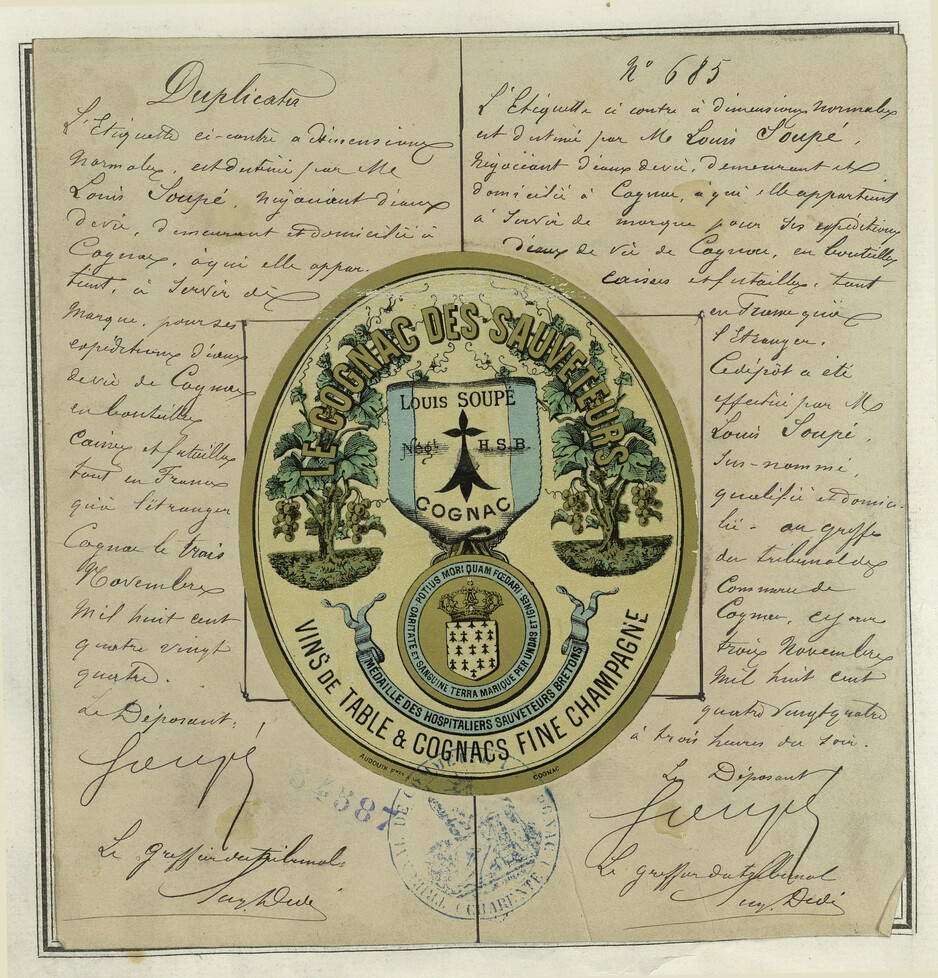 Duplicata
L'Etiquette ci-contre a dimensions
normales, est destiné par Me
Louis Soupé, négociant d'eaux
devie, demeurant et domicilié à
Cognac, à qui elle appar-
tient, à servir de
marque, pour ses
expéditions d'eaux
devie de Cognac
en bouteilles
caisses et futailles
tant en France
qu'à l'étranger
Cognac le trois
Novembre
Mil huit cent
quatre vingt
quatre.
Le Déposant,
Soupé
Le greffier du tribunal
N° 685
L'Etiquette ci contre à dimensions normales
est destiné par Me Louis Soupé,
négociant d'eaux devie, demeurant et
domicilié à Cognac, à qui elle appartient
à servir de marque pour ses expéditions
d'eaux de vie de Cognac, en bouteilles
caisses et futailles, tant
en France qu'à
l'Etranger.
Ce dépôt a été
effectué par Me
Louis Soupé,
sus-nommé
qualifié et domici-
lié - au greffe
du tribunal de
Commerce de
Cognac, ce jour
trois Novembre
Mil huit cent
quatre vingt quatre
à trois heures du soir.
Le Déposant
Soupé
Le greffier du tribunal
LE COGNAC DES SAUVETEURS
LOUIS SOUPÉ
Négt H.S.B.
COGNAC
POTIUS MORI QUAM FŒDARI
CARITATE ET SANGUINE TERRA MARIQUE PER UNDAS ET IGNES
MÉDAILLE DES HOSPITALIERS SAUVETEURS BRETONS
VINS DE TABLE & COGNACS FINE CHAMPAGNE
AUDOUIN COGNAC
CHARENTE